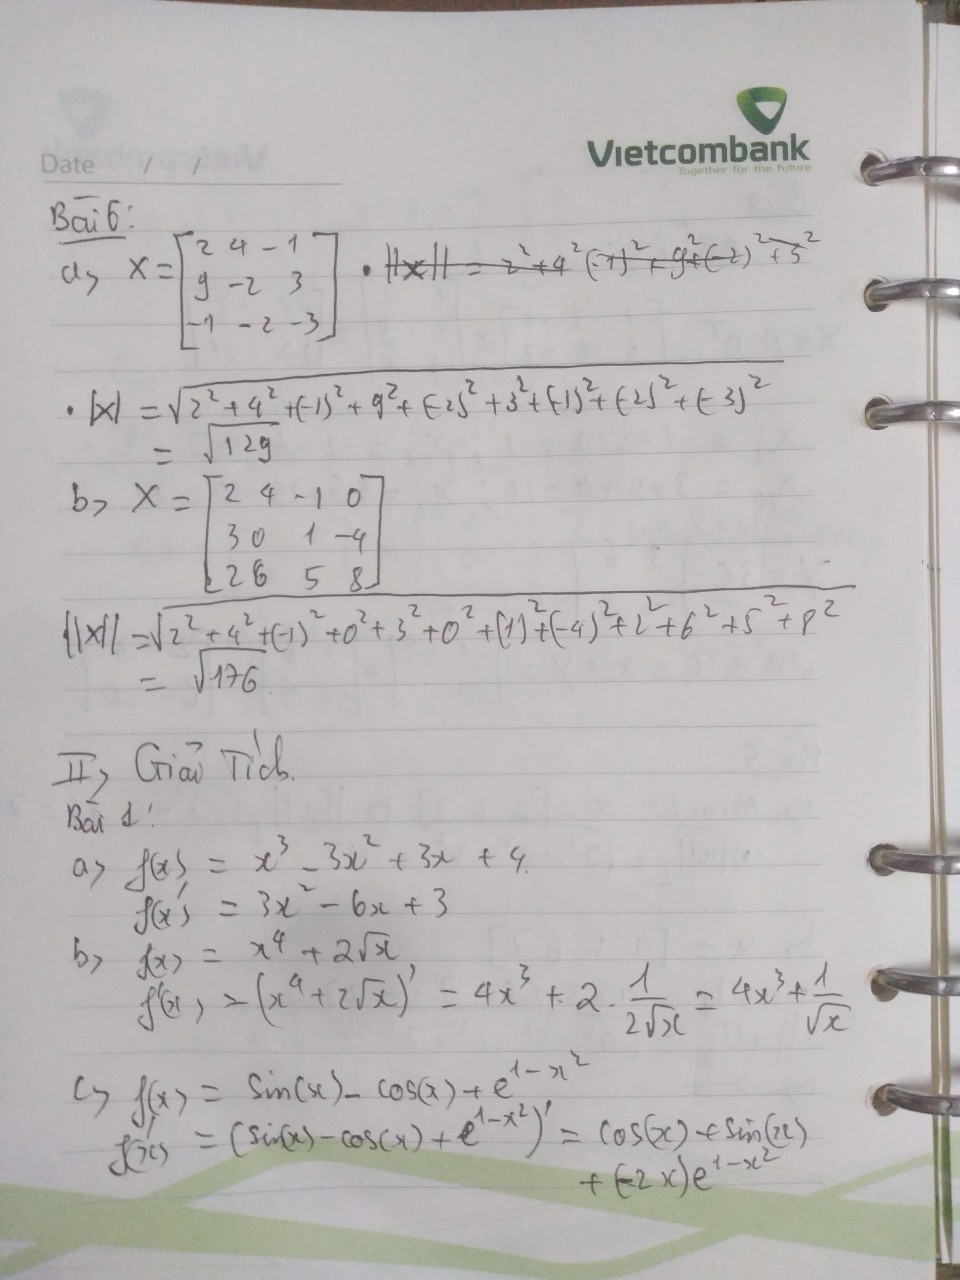 Date / /
Vietcombank
Together for the future
Bài 6:
a, X = [2 4 -1
9 -2 3
-1 -2 -3] • ||x|| = 2² + 4² (-1)² + 9² + (-2)² + 5²
• |x| = √(2² + 4² + (-1)² + 9² + (-2)² + 3² + (-1)² + (-2)² + (-3)²)
= √129
b, X = [2 4 -1 0
3 0 1 -4
2 6 5 8]
||x|| = √(2² + 4² + (-1)² + 0² + 3² + 0² + (1)² + (-4)² + 2² + 6² + 5² + 8²)
= √176
II, Giải Tích.
Bài 1:
a, f(x) = x³ - 3x² + 3x + 4
f(x)' = 3x² - 6x + 3
b, f(x) = x⁴ + 2√x
f'(x) = (x⁴ + 2√x)' = 4x³ + 2 . 1/(2√x) = 4x³ + 1/√x
c, f(x) = sin(x) - cos(x) + e^(1-x²)
f'(x) = (sin(x) - cos(x) + e^(1-x²))' = cos(x) + sin(x)
+ (-2x)e^(1-x²)